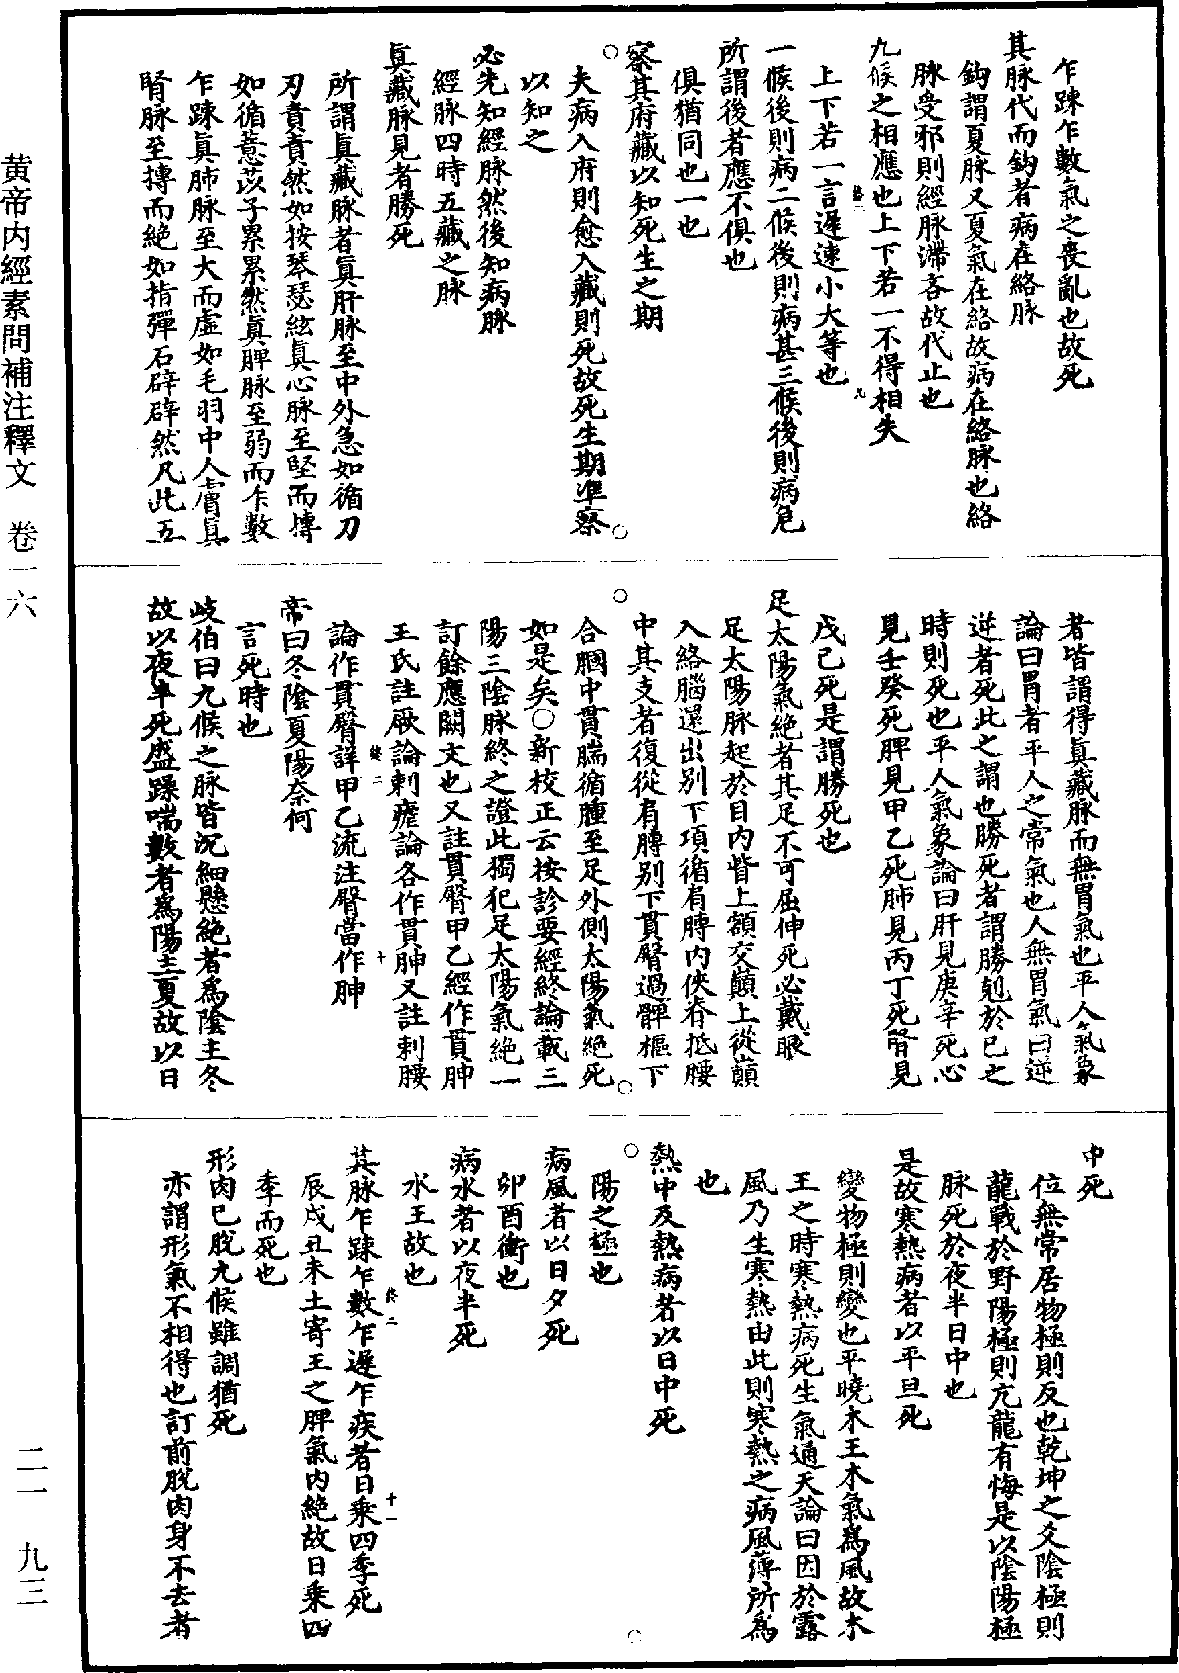 乍踈乍數氣之喪亂也故死
其脉代而鈎者病在絡脉
鈎謂夏脉又夏氣在絡故病在絡脉也絡
脉受邪則經脉滯吝故代止也
九候之相應也上下若一不得相失
上下若一言遲速小大等也
一候後則病二候後則病甚三候後則病危
所謂後者應不俱也
俱猶同也一也
察其府藏以知死生之期
夫病入府則愈入藏則死故死生期準察
以知之
必先知經脉然後知病脉
經脉四時五藏之脉
眞藏脉見者勝死
所謂眞藏脉者眞肝脉至中外急如循刀
刃責責然如按琴瑟絃眞心脉至堅而摶
如循薏苡子累累然眞脾脉至弱而乍數
乍踈眞肺脉至大而虛如毛羽中人膚眞
腎脉至摶而絶如指彈石辟辟然凡此五
者皆謂得眞藏脉而無胃氣也平人氣象
論曰胃者平人之常氣也人無胃氣曰逆
逆者死此之謂也勝死者謂勝剋於已之
時則死也平人氣象論曰肝見庚辛死心
見壬癸死脾見甲乙死肺見丙丁死腎見
戊己死是謂勝死也
足太陽氣絶者其足不可屈伸死必戴眼
足太陽脉起於目内眥上額交巔上從巔
入絡腦還出别下項循肩膊内俠脊抵腰
中其支者復從肩膊别下貫臀過髀樞下
合膕中貫腨循腫至足外側太陽氣絶死
如是矣○新校正云按診要經終論載三
陽三陰脉終之證此獨犯足太陽氣絶一
訂餘應闕文也又註貫臀甲乙經作貫胂
王氏註厥論刺瘧論各作貫胂又註刺腰
論作貫臀詳甲乙流注臀當作胂
帝曰冬陰夏陽奈何
言死時也
岐伯曰九候之脉皆沉細懸絶者爲陰主冬
故以夜半死盛躁喘數者爲陽主夏故以日
中死
位無常居物極則反也乾坤之爻陰極則
龍戰於野陽極則亢龍有悔是以陰陽極
脉死於夜半日中也
是故寒熱病者以平旦死
變物極則變也平曉木王木氣爲風故木
王之時寒熱病死生氣通天論曰因於露
風乃生寒熱由此則寒熱之病風薄所爲
也
熱中及熱病者以日中死
陽之極也
病風者以日夕死
卯酉衝也
病水者以夜半死
水王故也
其脉乍踈乍數乍遲乍疾者日乘四季死
辰戌丑未土寄王之脾氣内絶故日乘四
季而死也
形肉已脱九候雖調猶死
亦謂形氣不相得也訂前脱肉身不去者
黄帝内經素問補注釋文 卷一六
二一 九三